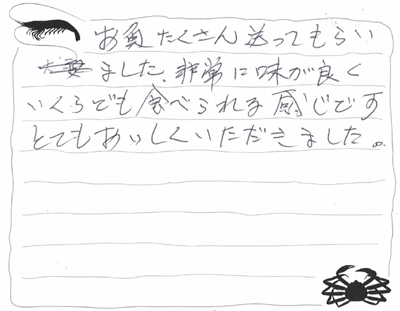 お負たくさん送ってもらい
ました、非常に味が良く
いくらでも食べられる感じです
とてもおいしくいただきました。